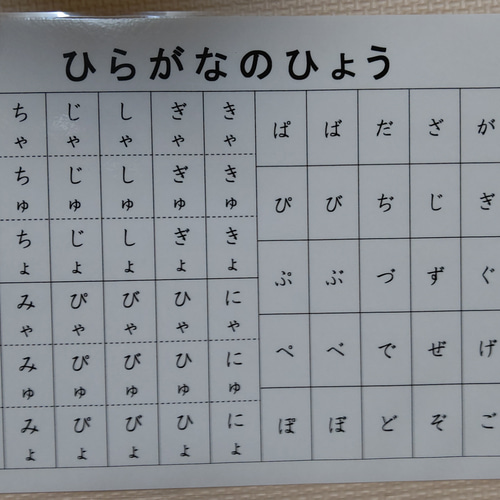 ひらがなのひょう
が ぎ ぐ げ ご
ざ じ ず ぜ ぞ
だ ぢ づ で ど
ば び ぶ べ ぼ
ぱ ぴ ぷ ぺ ぽ
きゃ きゅ きょ
ぎゃ ぎゅ ぎょ
しゃ しゅ しょ
じゃ じゅ じょ
ちゃ ちゅ ちょ
にゃ にゅ にょ
ひゃ ひゅ ひょ
びゃ びゅ びょ
ぴゃ ぴゅ ぴょ
みゃ みゅ みょ